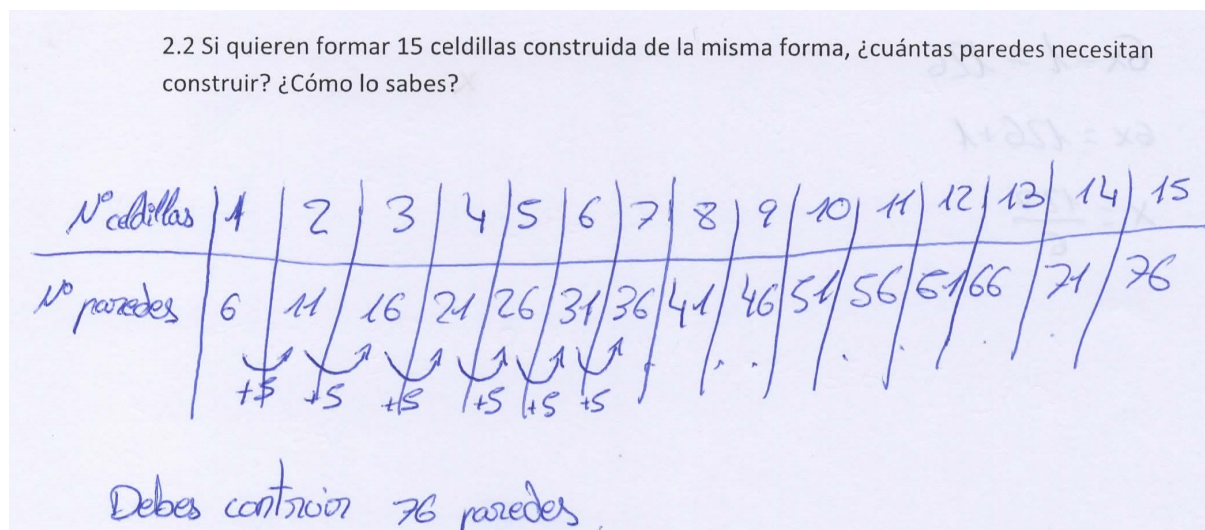 2.2 Si quieren formar 15 celdillas construida de la misma forma, ¿cuántas paredes necesitan
construir? ¿Cómo lo sabes?
Nº celdillas 1 2 3 4 5 6 7 8 9 10 11 12 13 14 15
Nº paredes 6 11 16 21 26 31 36 41 46 51 56 61 66 71 76
+5 +5 +5 +5 +5 +5
Debes contruir 76 paredes.